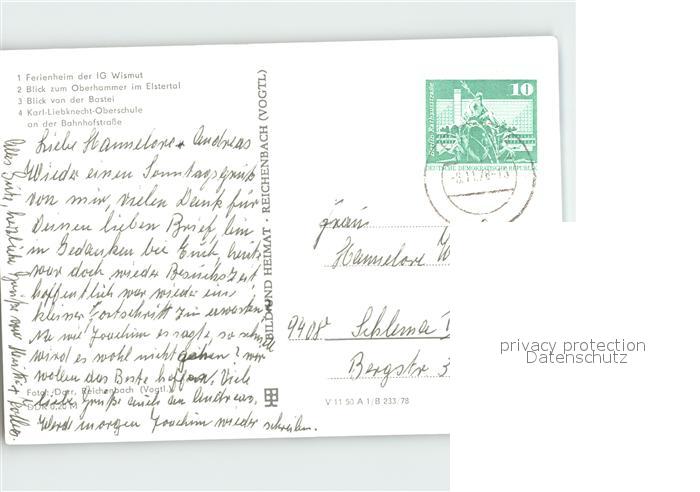 1 Ferienheim der IG Wismut
2 Blick zum Oberhammer im Elstertal
3 Blick von der Bastei
4 Karl-Liebknecht-Oberschule
an der Bahnhofstraße
Liebe Hannelore + Andreas
Wieder einen Sonntagsgruß
von mir, vielen Dank für
Deinen lieben Brief, bin
in Gedanken bei Euch, heute
war doch wieder Besuchszeit
hoffentlich war wieder ein
kleiner Fortschritt zu erwarten.
Na wie Joachim es sagte, so schnell
wird es wohl nicht gehen? wir
wollen das Beste hoffen. Viele
liebe Grüße auch an Andreas.
Werde morgen Joachim wieder schreiben.
Alles Gute, herzliche Grüße von
Foto: Darr, Reichenbach (Vogtl.)
DDR 0,20 M
BILD UND HEIMAT · REICHENBACH (VOGTL)
V 11 50 A 1/B 233/78
10
Berlin, Rathausstraße
DEUTSCHE DEMOKRATISCHE REPUBLIK
Frau
Hannelore
9408 Schlema
Bergstr 3
privacy protection
Datenschutz